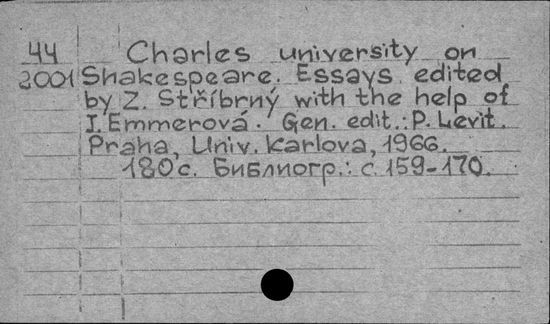 44 Charles university on
2001 Shakespeare. Essays edited
by Z. Stříbrný with the help of
I. Emmerová. Gen. edit.: P. Levit.
Praha, Univ. Karlova, 1966.
180 с. Библиогр.: с. 159-170.